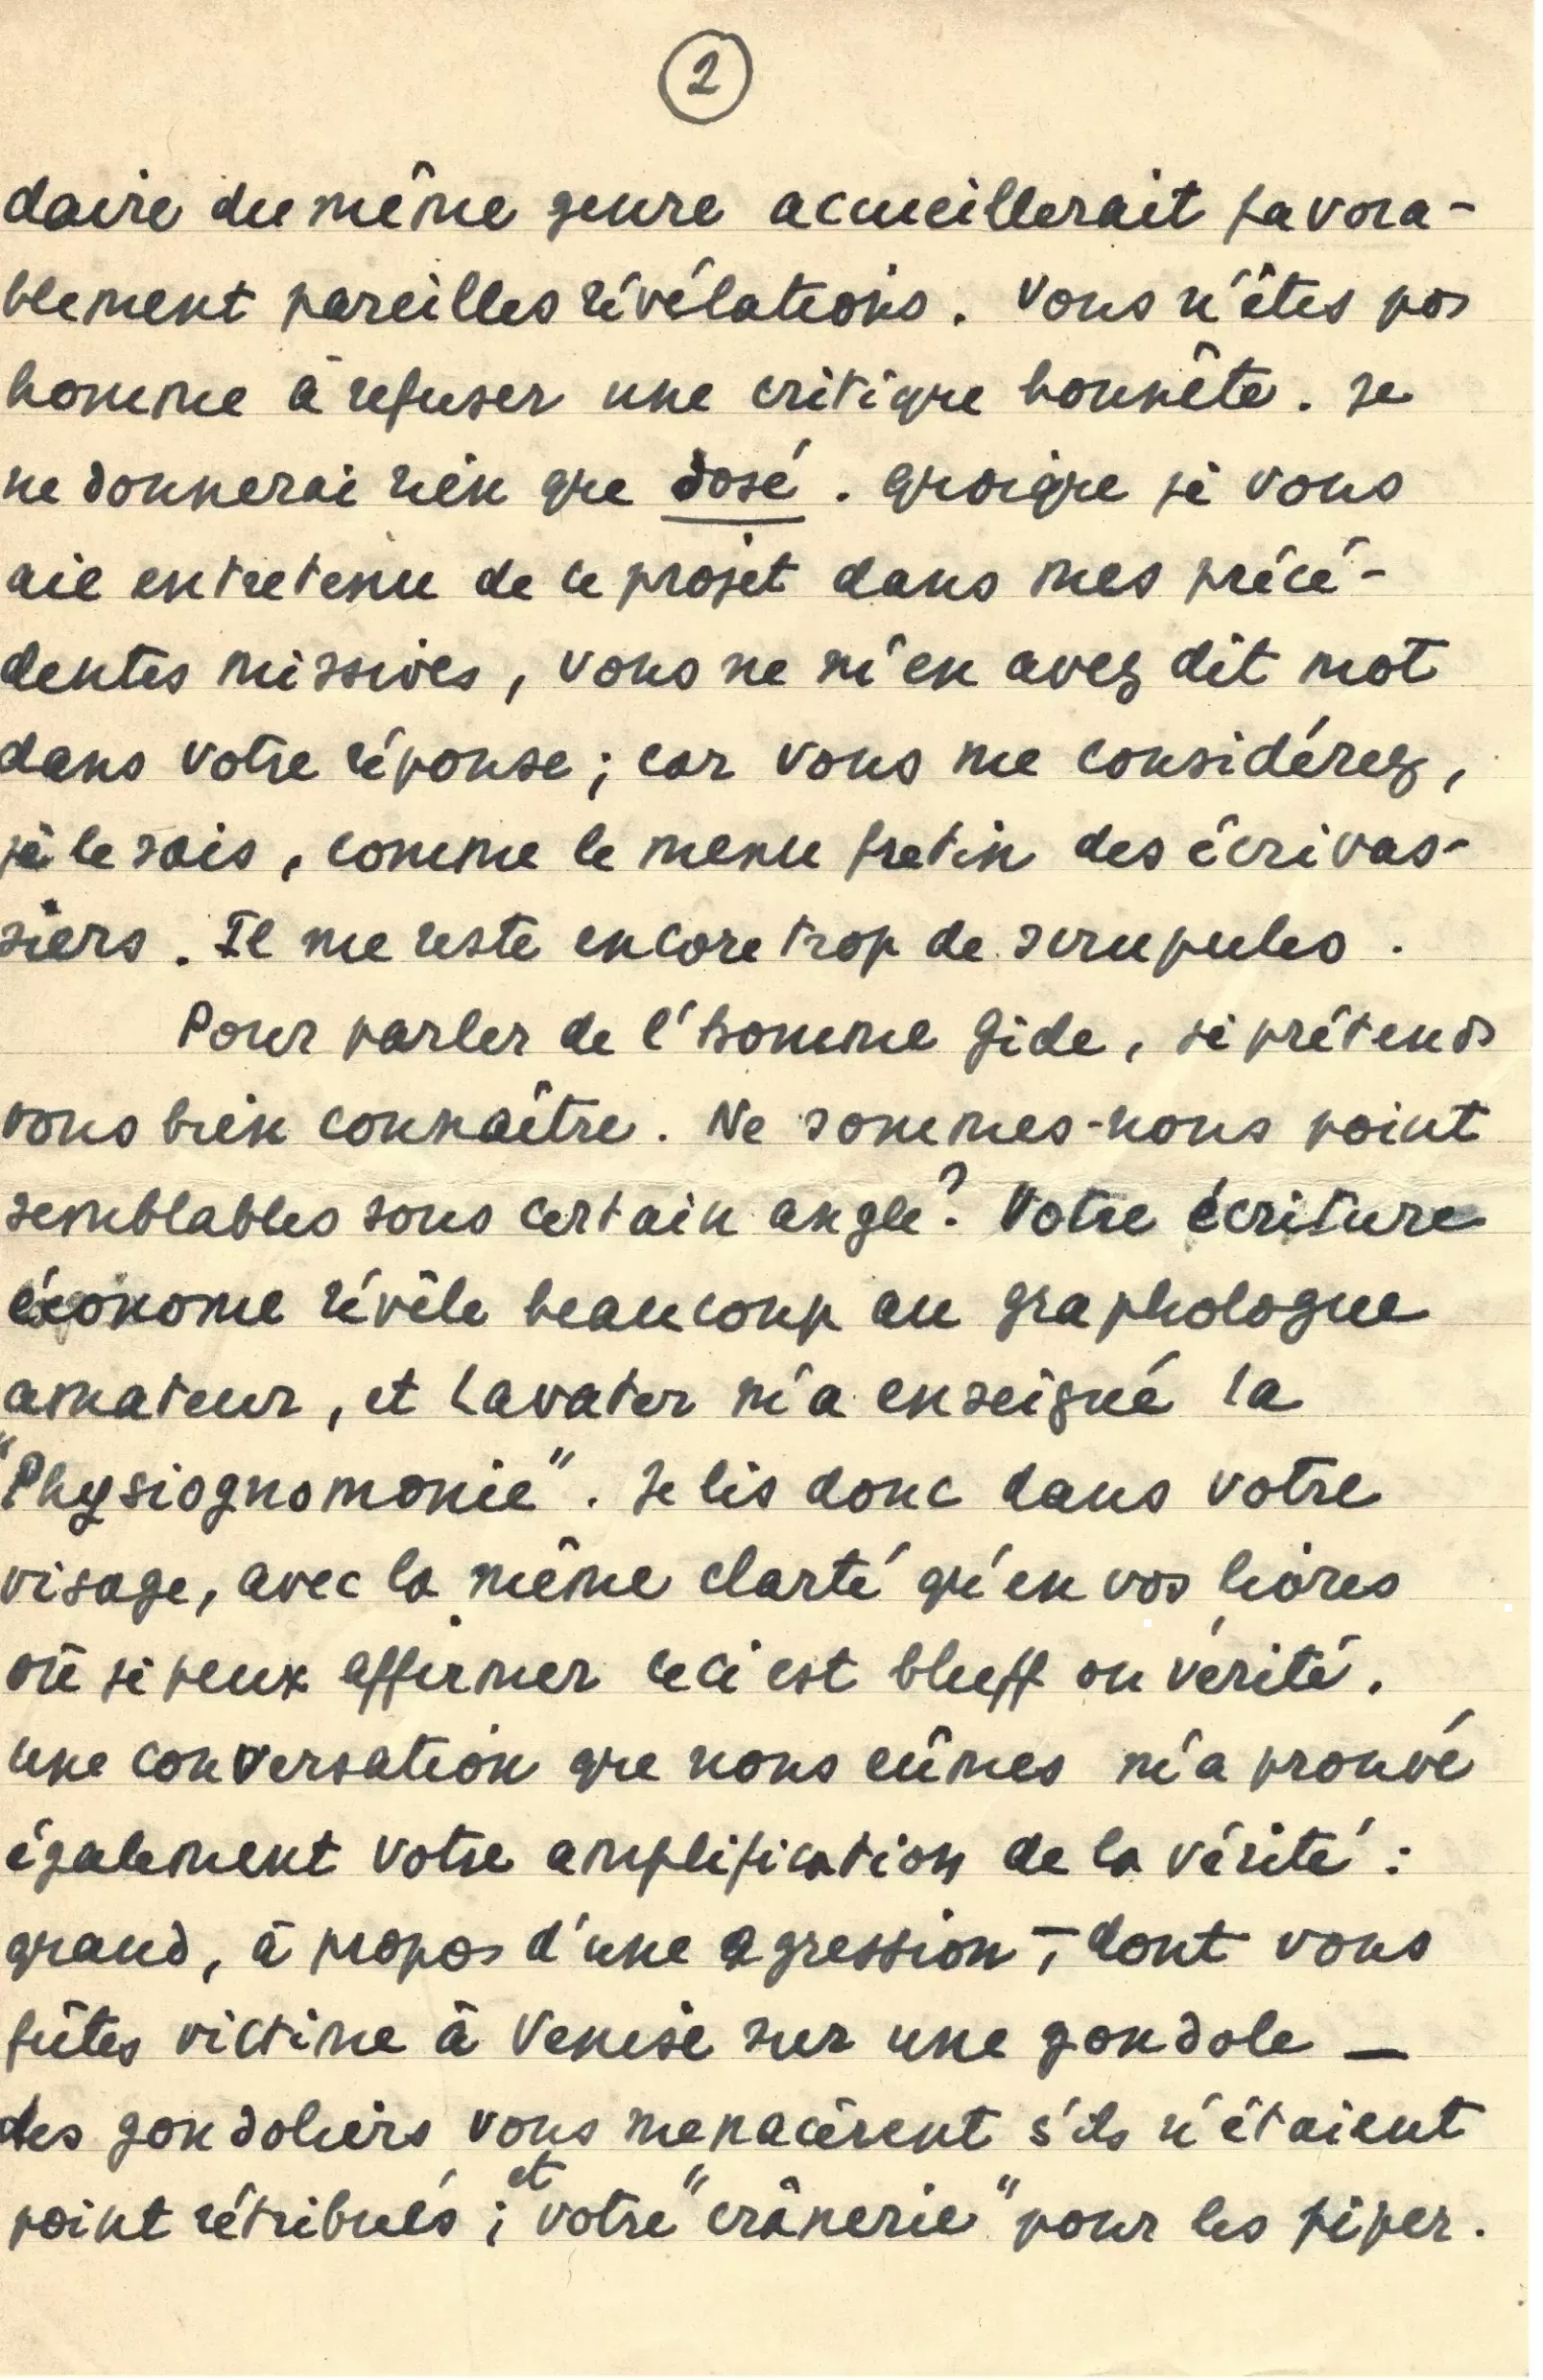 2
daire du même genre accueillerait favora-
blement pareilles révélations. Vous n'êtes pas
homme à refuser une critique honnête. Je
ne donnerai rien que dosé. Quoique je vous
aie entretenu de ce projet dans mes précé-
dentes missives, vous ne m'en avez dit mot
dans votre réponse; car vous me considérez,
je le sais, comme le menu fretin des écrivas-
siers. Il me reste encore trop de scrupules.
Pour parler de l'homme Gide, je prétends
vous bien connaître. Ne sommes-nous point
semblables sous certain angle? Votre écriture
économe révèle beaucoup au graphologue
amateur, et Lavater m'a enseigné la
"Physiognomonie". Je lis donc dans votre
visage, avec la même clarté qu'en vos livres
où je peux affirmer ceci est bluff ou vérité.
Une conversation que nous eûmes m'a prouvé
également votre amplification de la vérité:
quand, à propos d'une agression, - dont vous
fûtes victime à Venise sur une gondole —
des gondoliers vous menacèrent s'ils n'étaient
point rétribués; et votre "crânerie" pour les piper.